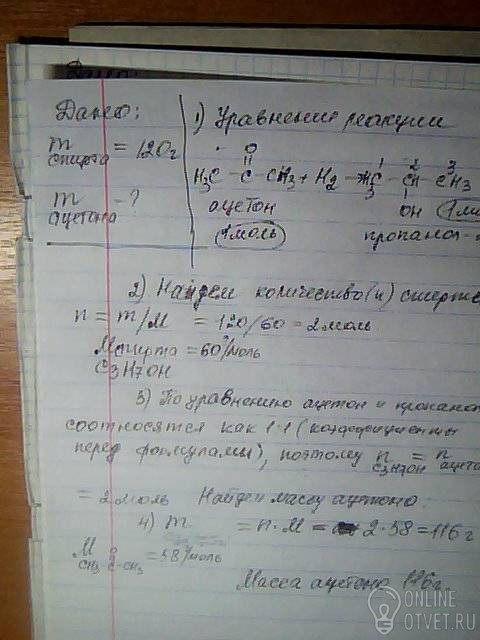 Дано:
m спирта = 120г
m ацетона - ?
1) Уравнение реакции
O
||
H3C - C - CH3 + H2 → H3C - CH - CH3
1 2 3
ацетон
OH
1моль
пропанол-
2) Найдем количество (n)
n = m/M = 120/60 = 2 моль
M спирта = 60 г/моль
C3H7OH
3) По уравнению ацетон и
соотносятся как 1:1 (коэффициенты
перед формулами), поэтому n C3H7OH = n
= 2 моль Найдем массу ацетона.
4) m = n·M = 2·58 = 116 г
M CH3-C-CH3 = 58 г/моль
O
Масса ацетона 116г.
ONLINE
OTVET.RU